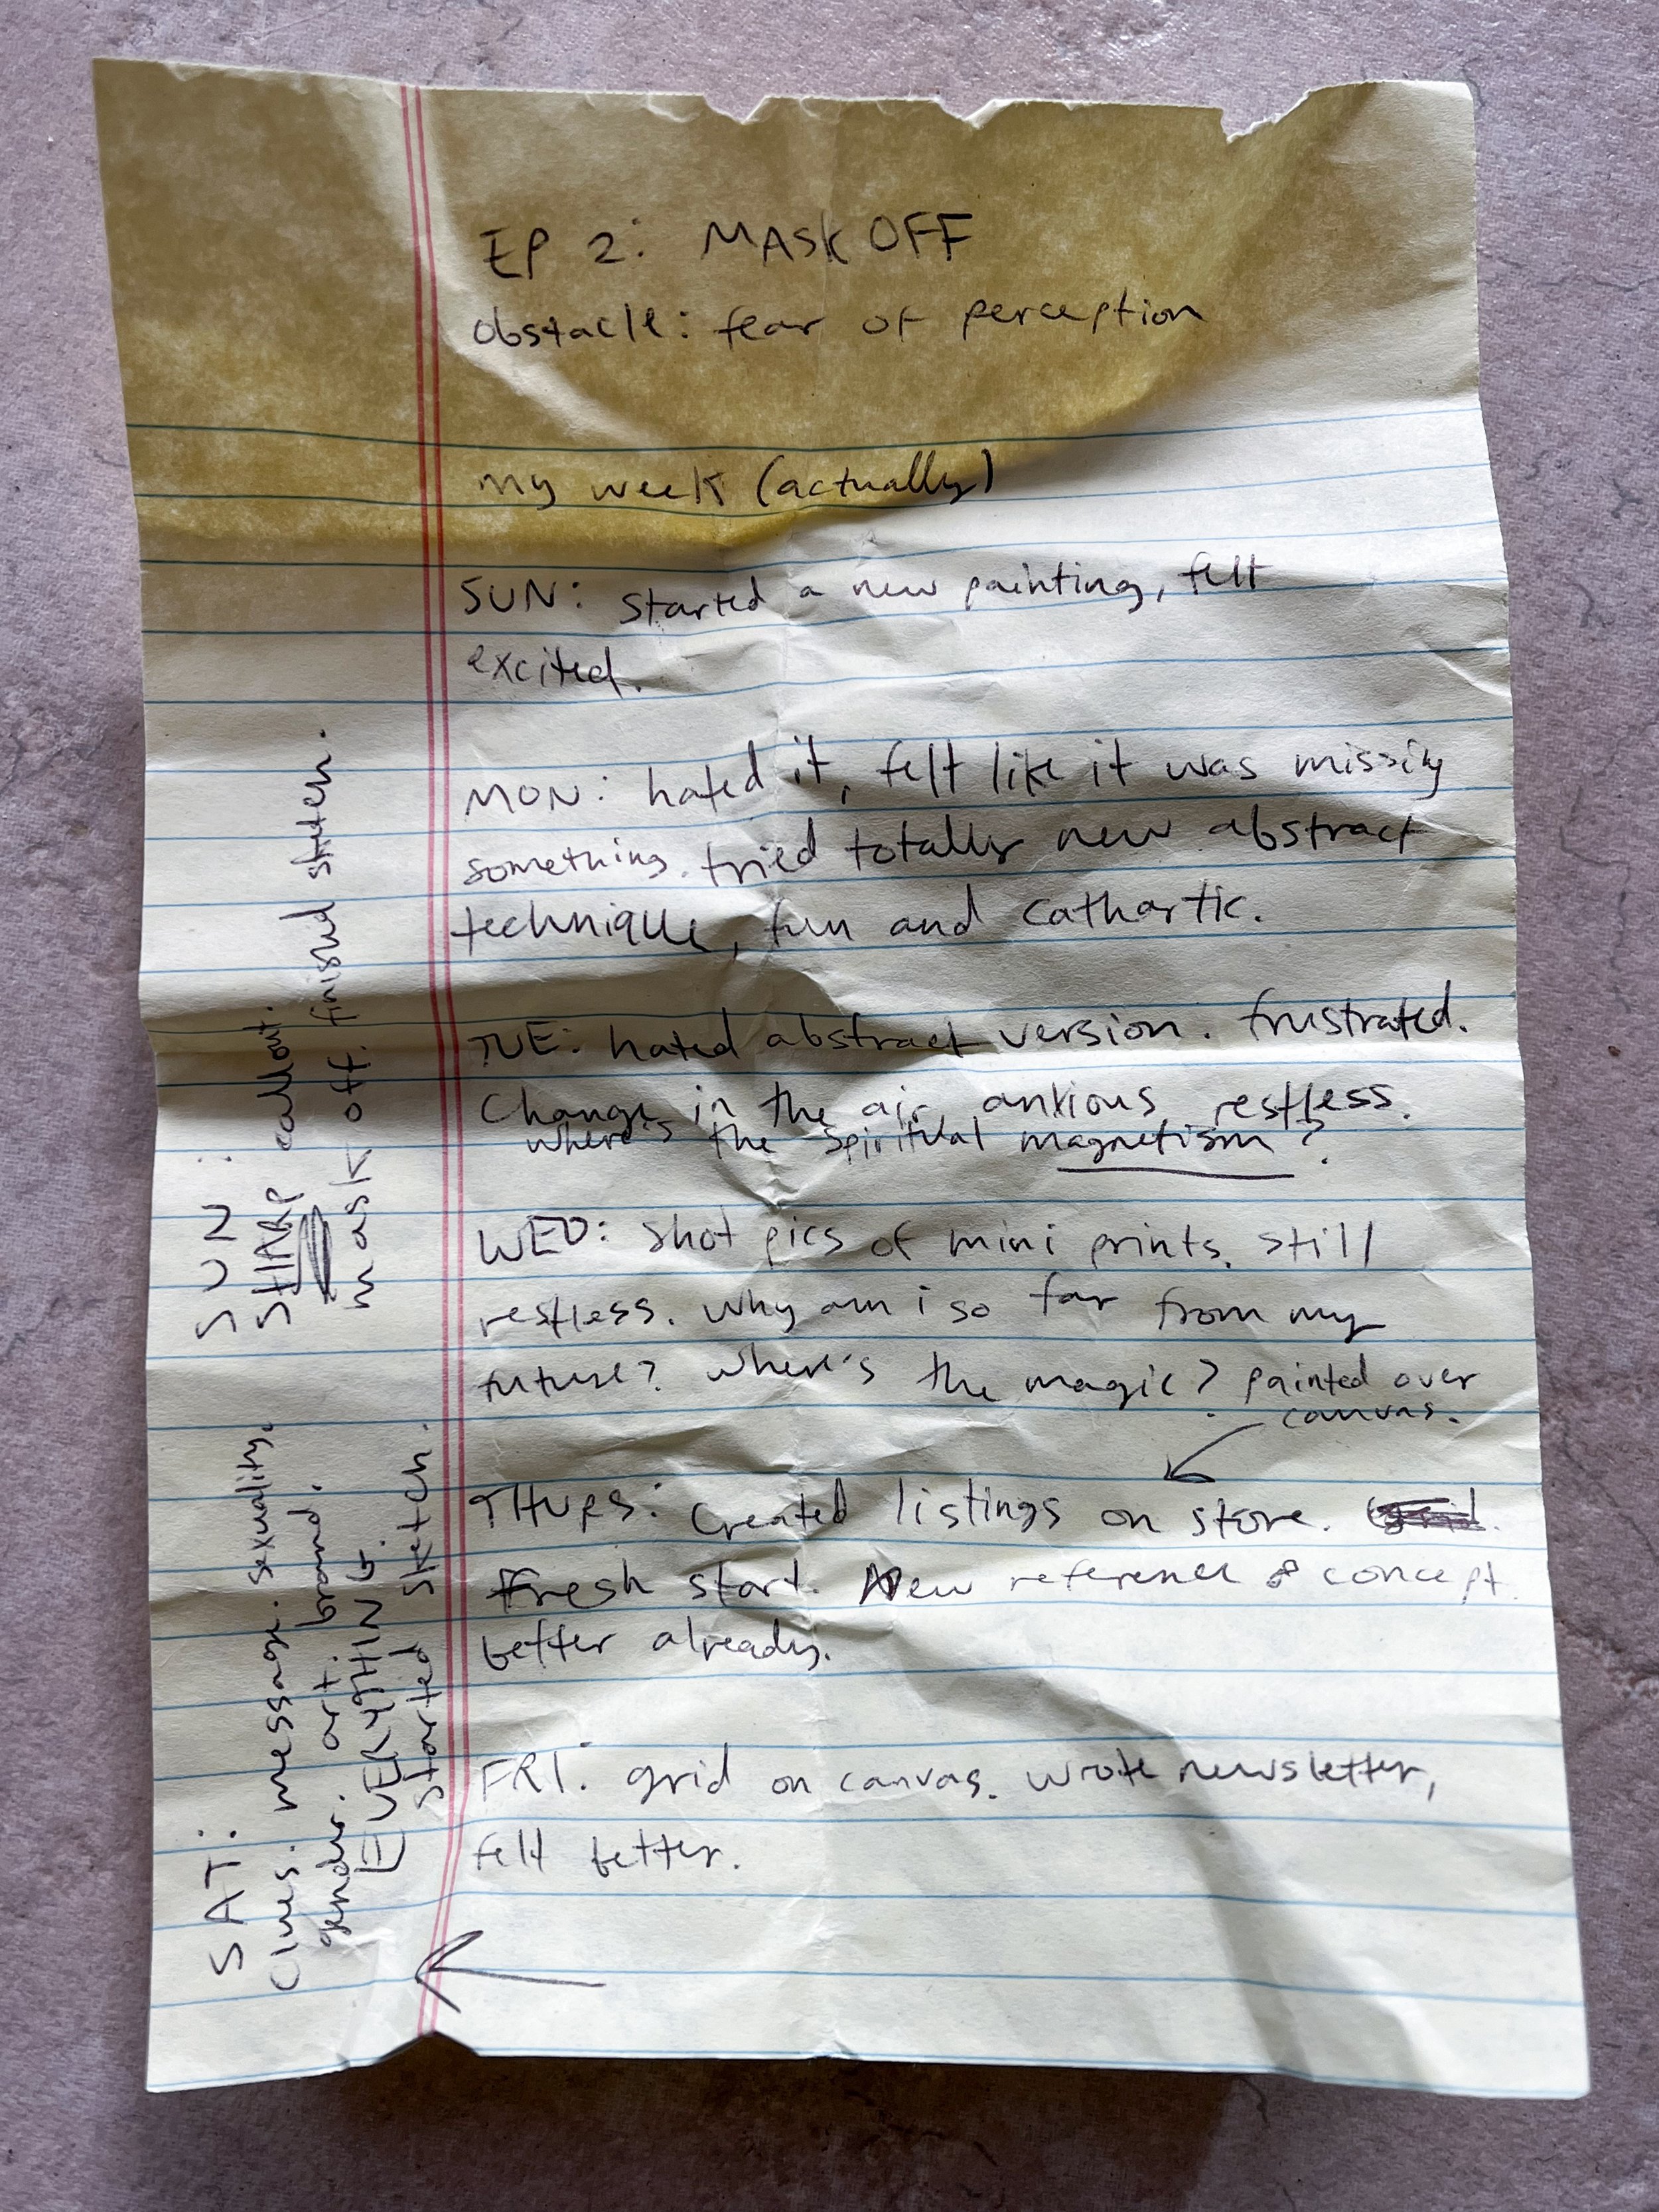 EP 2: MASK OFF
obstacle: fear of perception
my week (actually)
SUN: started a new painting, felt
excited.
MON: hated it, felt like it was missing
something. tried totally new abstract
technique, fun and cathartic.
TUE: hated abstract version. frustrated.
Change in the air, anxious, restless.
where's the spiritual magnetism?
WED: shot pics of mini prints. still
restless. why am i so far from my
future? where's the magic? painted over
canvas.
THURS: Created listings on store.
Fresh start. New reference & concept.
better already.
FRI: grid on canvas. wrote newsletter,
felt better.
SAT:
Clues: message. sexuality.
gender. art. brand.
EVERYTHING.
started sketch.
SUN:
SHARP callout:
mask off. finished sketch.